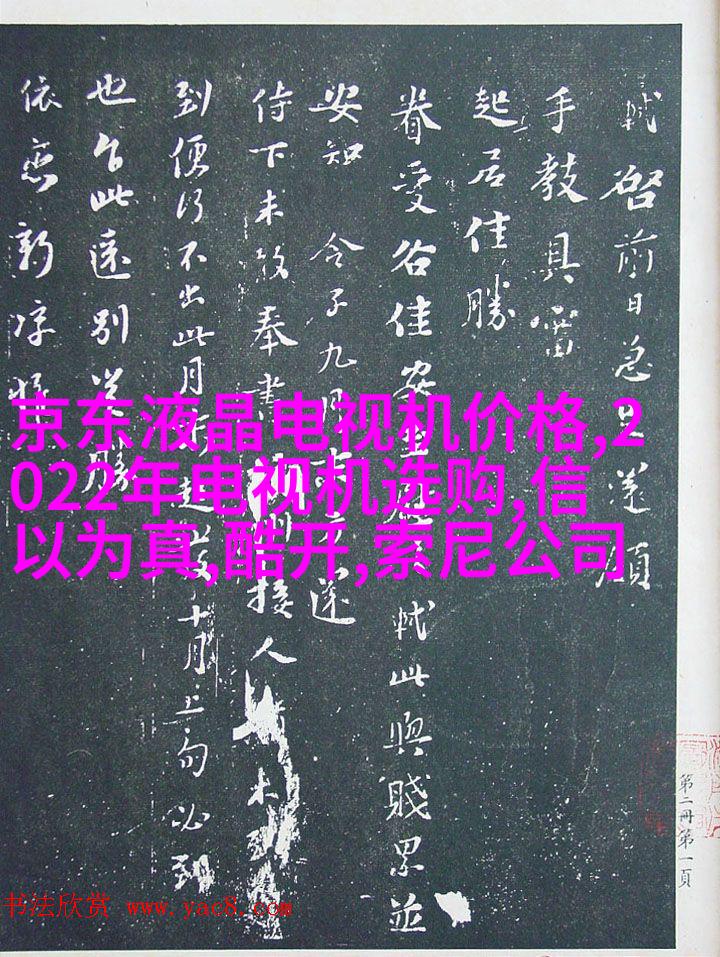 軾啓前日急足還領
手教具審
起居佳勝
眷愛各佳安軾此與賤累並
安知 令子九月末還
侍下未及奉書接人猶未到
到便行不出此月起發十月上旬必到
也乍此遠別勝
依戀新涼惟
京东液晶电视机价格,2
022年电视机选购,信
以为真,酷开,索尼公司
第二冊第一頁
书法欣赏 www.yac8.com